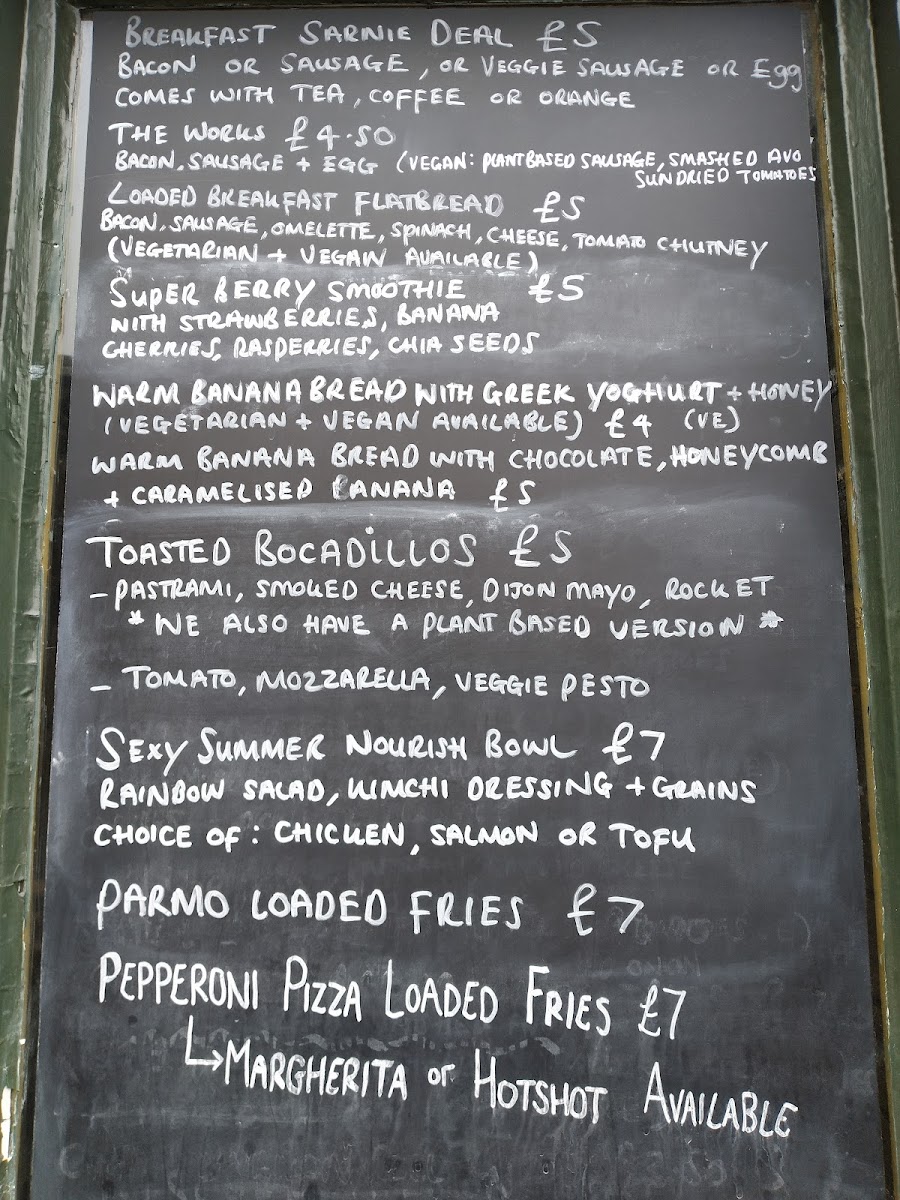 BREAKFAST SARNIE DEAL £5
BACON OR SAUSAGE, OR VEGGIE SAUSAGE OR Egg
COMES WITH TEA, COFFEE OR ORANGE
THE WORKS £4.50
BACON, SAUSAGE + EGG (VEGAN: PLANT BASED SAUSAGE, SMASHED AVO
SUNDRIED TOMATOES
LOADED BREAKFAST FLATBREAD £5
BACON, SAUSAGE, OMELETTE, SPINACH, CHEESE, TOMATO CHUTNEY
(VEGETARIAN + VEGAN AVAILABLE)
SUPER BERRY SMOOTHIE £5
WITH STRAWBERRIES, BANANA
CHERRIES, RASPBERRIES, CHIA SEEDS
WARM BANANA BREAD WITH GREEK YOGHURT + HONEY
(VEGETARIAN + VEGAN AVAILABLE) £4 (VE)
WARM BANANA BREAD WITH CHOCOLATE, HONEYCOMB
+ CARAMELISED BANANA £5
TOASTED BOCADILLOS £5
- PASTRAMI, SMOKED CHEESE, DIJON MAYO, ROCKET
* WE ALSO HAVE A PLANT BASED VERSION *
- TOMATO, MOZZARELLA, VEGGIE PESTO
SEXY SUMMER NOURISH BOWL £7
RAINBOW SALAD, KIMCHI DRESSING + GRAINS
CHOICE OF: CHICKEN, SALMON OR TOFU
PARMO LOADED FRIES £7
PEPPERONI PIZZA LOADED FRIES £7
↳ MARGHERITA or HOTSHOT AVAILABLE